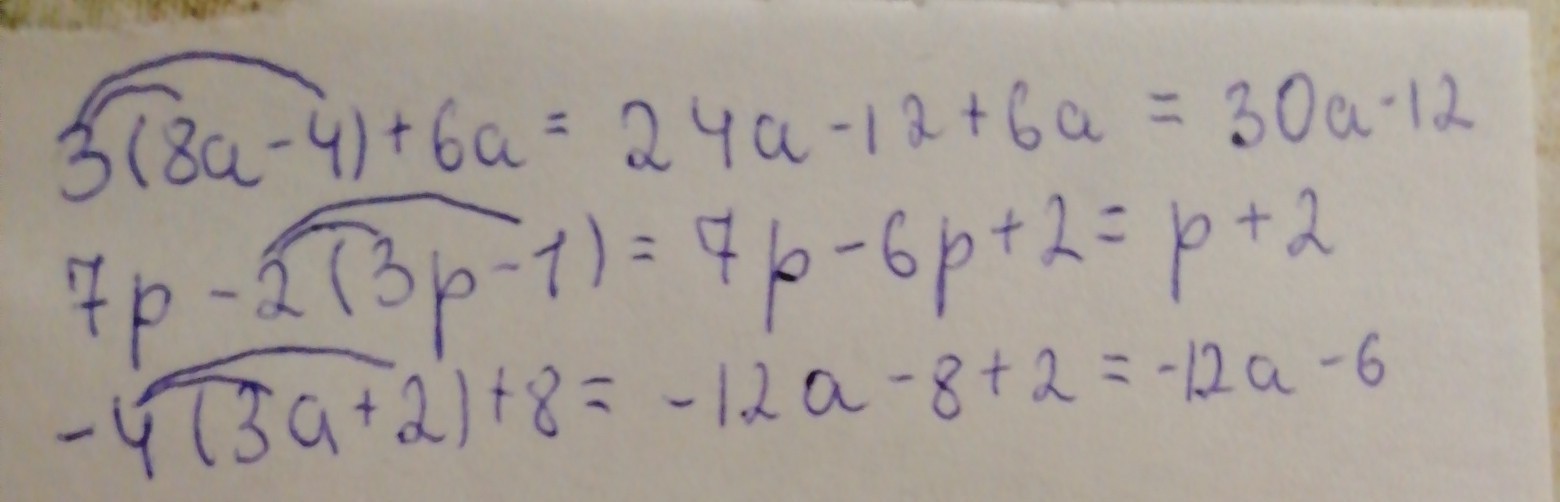 3(8a-4)+6a = 24a-12+6a = 30a-12
7p-2(3p-1) = 7p-6p+2 = p+2
-4(3a+2)+8 = -12a-8+2 = -12a-6